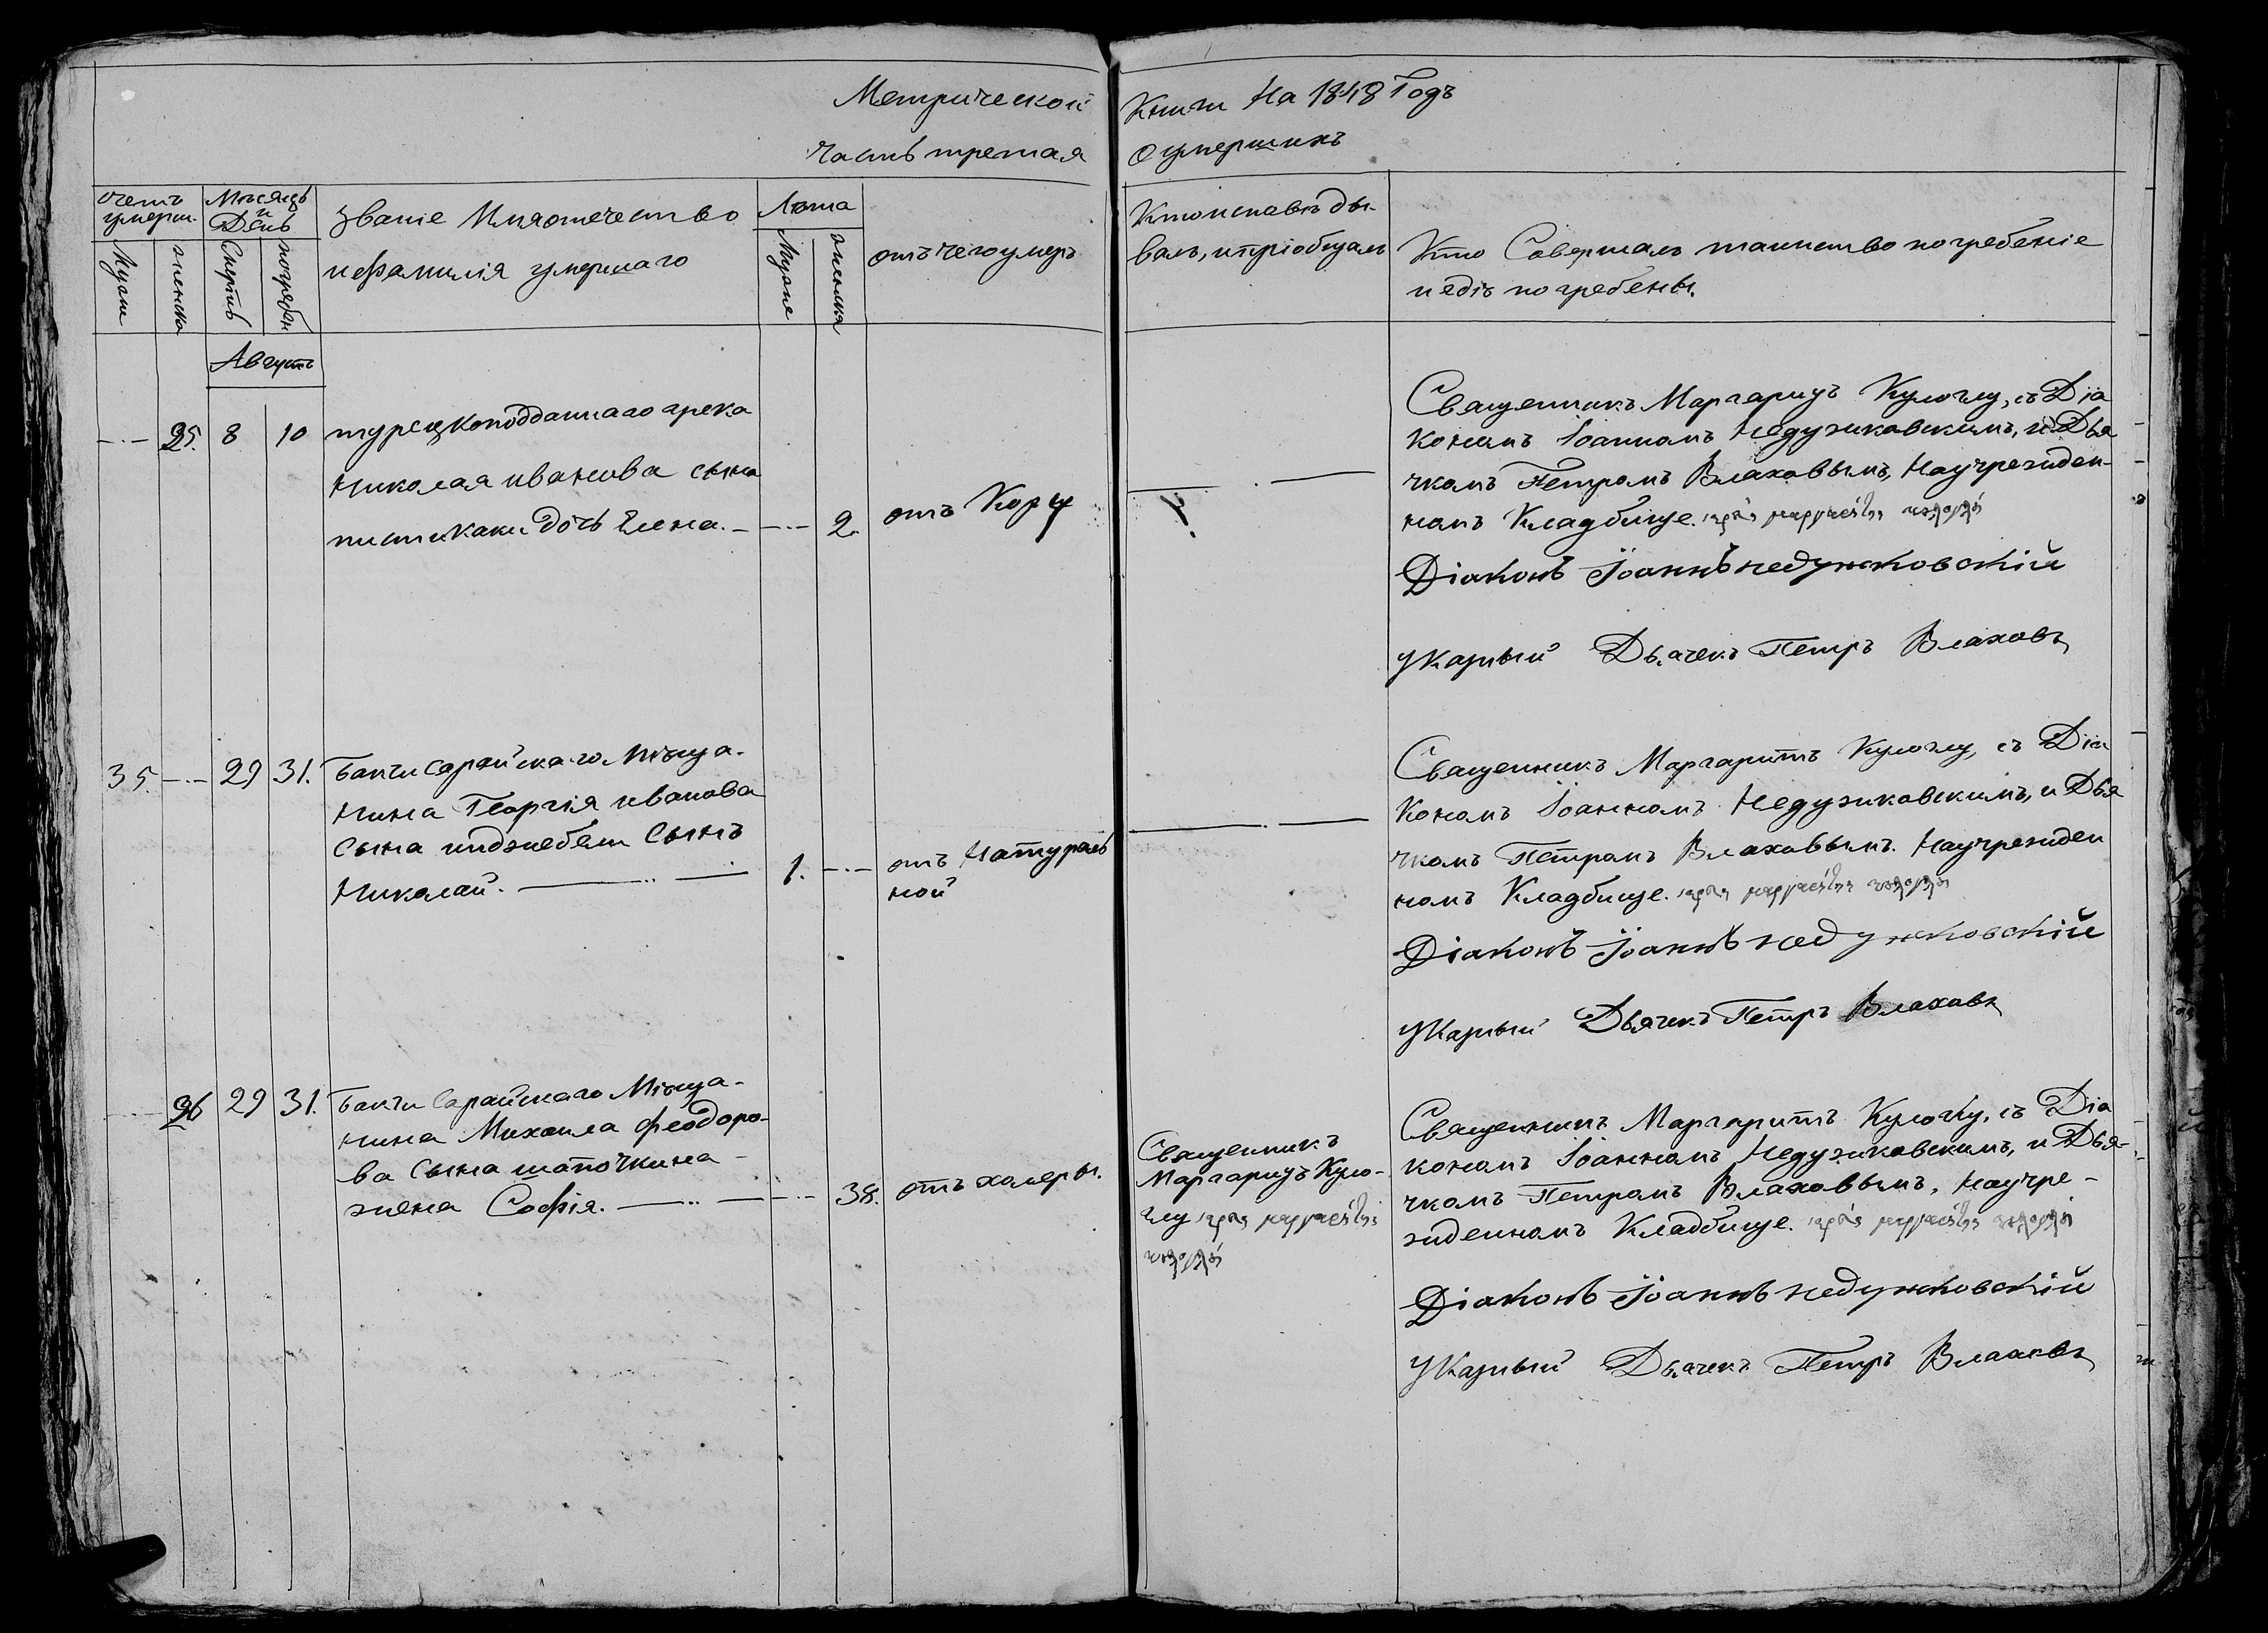 Метрической Книги на 1848 Годъ
часть третая о умершихъ
счетъ умерш.
Мѣсяцъ и День
Званіе Имя отечество
и фамилія умершаго
Лѣта
отъ чего умеръ
Кто исповѣды-
валъ, и пріобщалъ
Кто Совершалъ таинство погребеніе
и гдѣ погребены.
Мужы
женска
Смерть
погребен
Мужие
женския
Августъ
25. 8 10
турецкоподданнаго грека
николая иванова сына
пистикаки дочь Елена.
2.
отъ Кору
Священникъ Маргаридъ Кулоглу, съ Діа
кономъ Іоанномъ Недужковскимъ, и Дья
чкомъ Петромъ Влаховымъ, На учрежден-
номъ Кладбище.
Діаконъ Іоаннъ недужковскій
Указный Дьячекъ Петръ Влаховъ
35. 29 31.
Бакчисарайскаго Мѣща-
нина Георгія иванова
Сына инджебели Сынъ
Николай.
1.
отъ Натураль
ной
Священникъ Маргаритъ Кулоглу, съ Діа
кономъ Іоанномъ Недужковскимъ, и Дья
чкомъ Петромъ Влаховымъ. На учрежден
номъ Кладбище.
Діаконъ Іоаннъ недужковскій
Указный Дьячекъ Петръ Влаховъ
26 29 31.
Бакчисарайскаго Мѣща-
нина Михаила Феодоро-
ва Сына шапочкина
жена Софія.
38.
отъ холеры.
Священникъ
Маргаридъ Куло-
глу
Священникъ Маргаритъ Кулоглу, съ Діа
кономъ Іоанномъ Недужковскимъ, и Дья-
чкомъ Петромъ Влаховымъ, На учре-
жденномъ Кладбище.
Діаконъ Іоаннъ недужковскій
Указный Дьячекъ Петръ Влаховъ